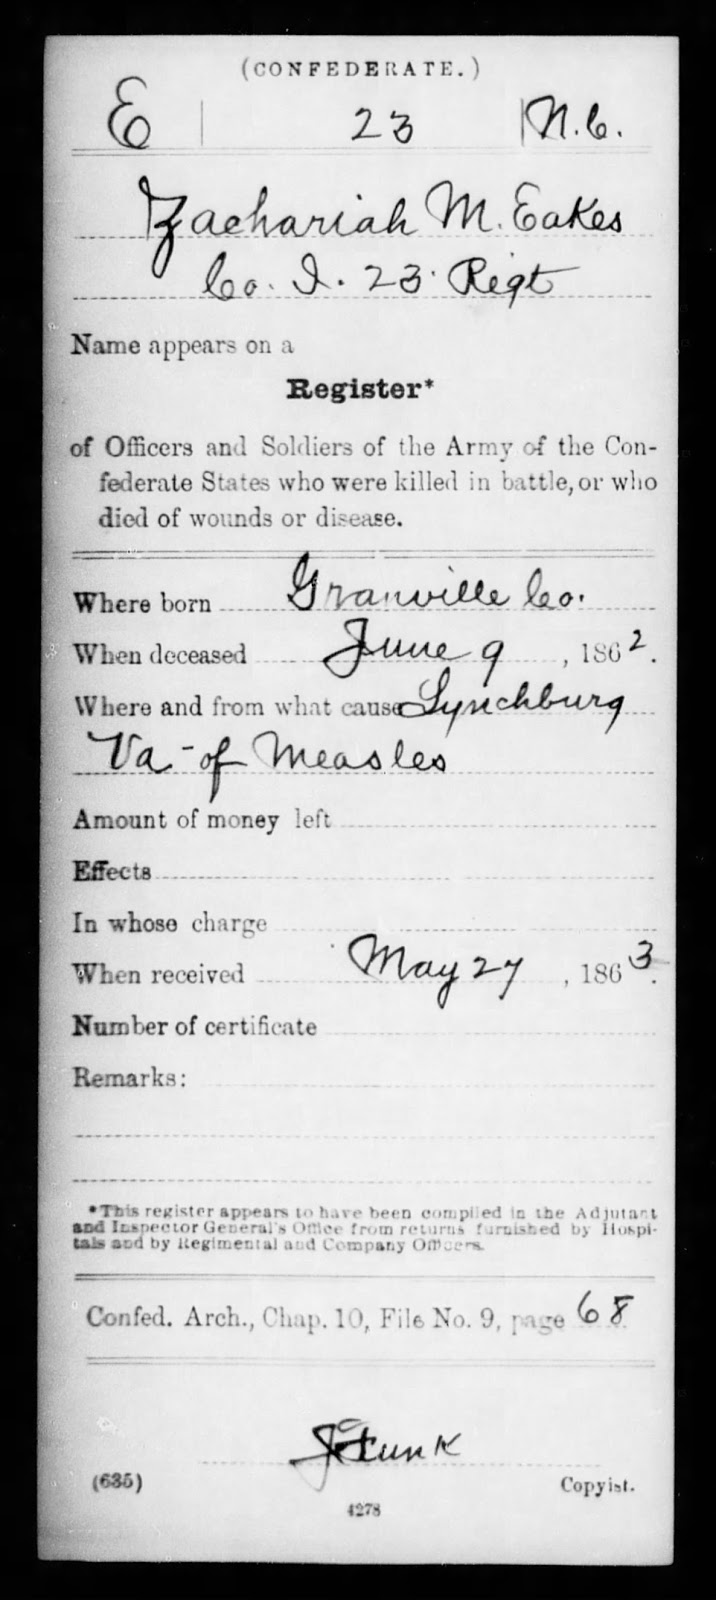 (CONFEDERATE.)
E | 23 | N.C.
Zachariah M. Eakes
Co. I. 23. Regt
Name appears on a
Register*
of Officers and Soldiers of the Army of the Con-
federate States who were killed in battle, or who
died of wounds or disease.
Where born Granville Co.
When deceased June 9, 1862.
Where and from what cause Lynchburg
Va - of Measles
Amount of money left
Effects
In whose charge
When received May 27, 1863.
Number of certificate
Remarks:
*This register appears to have been compiled in the Adjutant
and Inspector General's Office from returns furnished by Hospi-
tals and by Regimental and Company Officers.
Confed. Arch., Chap. 10, File No. 9, page 68
(635) Copyist.
4278